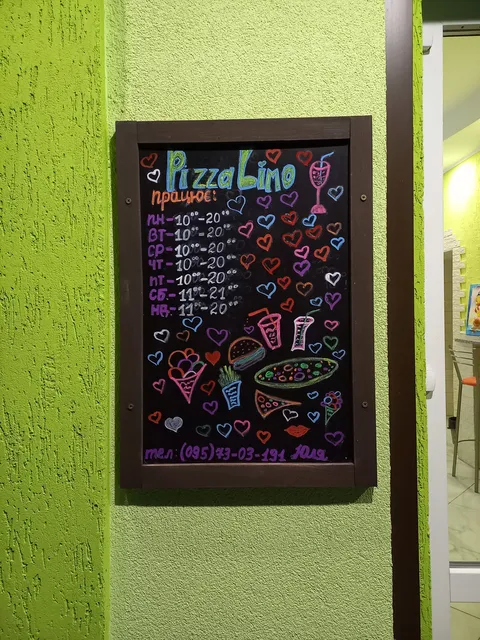 Pizza Limo
працює:
пн-10⁰⁰-20⁰⁰
вт-10⁰⁰-20⁰⁰
ср-10⁰⁰-20⁰⁰
чт-10⁰⁰-20⁰⁰
пт-10⁰⁰-20⁰⁰
сб.-11⁰⁰-21⁰⁰
нд.-11⁰⁰-20⁰⁰
тел:(095)73-03-191 Юля